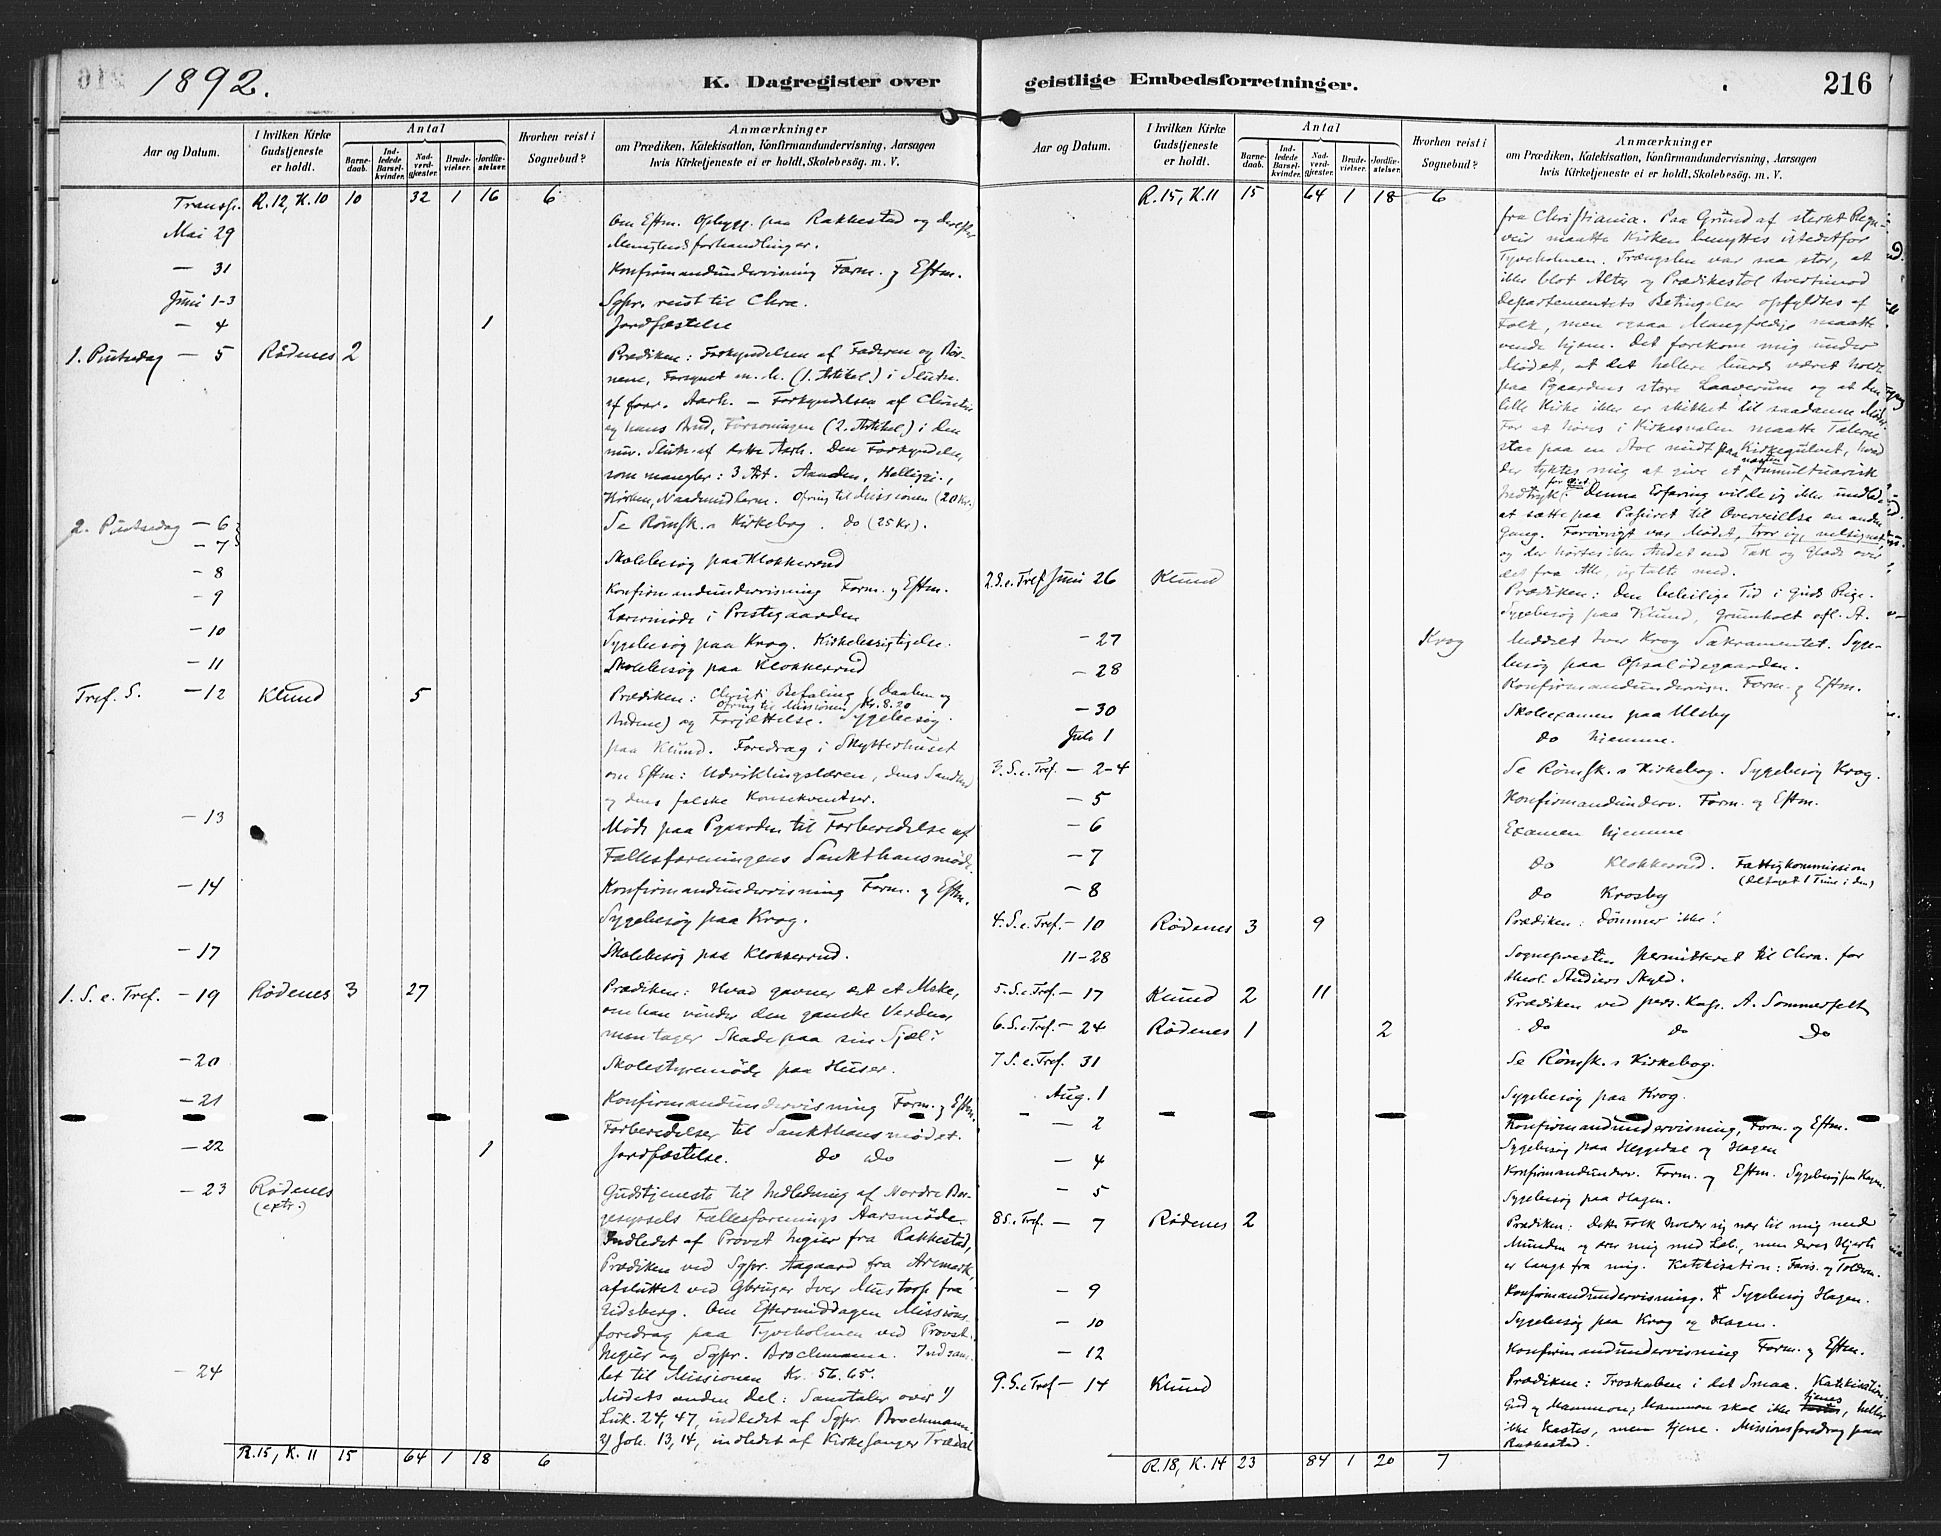 1892.
K. Dagregister over
Aar og Datum.
I hvilken Kirke Gudstjeneste er holdt.
Antal
Barnedaab.
Indledede Barselkvinder.
Nadverdgjester.
Brudevielser.
Jordfæstelser.
Hvorhen reist i Sognebud?
Anmærkninger
om Prædiken, Katekisation, Konfirmandundervisning, Aarsagen
hvis Kirketjeneste ei er holdt, Skolebesög. m. V.
Transp. R. 12, K. 10 10 32 1 16 6
Mai 29 Om Eftm. Opbygg. paa Rakkestad og derefter
forhandlinger.
— 31 Konfirmandundervisning Form. og Eftm.
Juni 1-3 Sgpr. reist til Chra.
— 4 1 Jordfæstelse
1. Pintsedag — 5 Rødenes 2 Prædiken: Forkyndelsen af Faderen og Bör-
nene, Forsynet m. M. (1. Artikel) i Slutn.
af forr. Aarh. — Forkyndelsen af Christus
og hans Aand, Forsoningen (2. Artikel) i den
nuv. Slutn. af dette Aarh. Den Forkyndelse,
som mangler: 3 Art. Aanden, Helliggj.,
Kirken, Naademidlerne. Ofring til Missionen (20 Kr.
2. Pintsedag — 6 Se Rømsk. s Kirkebog. do (25 Kr).
— 7
Skolebesög paa Klokkerrud
— 8 Konfirmandundervisning Form. og Eftm.
— 9 Lærermøde i Prestegaarden
— 10 Sygebesög paa Krog. Kirkebesigtigelse.
— 11 Skolebesög paa Klokkerrud
Tref. S. — 12 Klund 5 Prædiken: Christi Befaling (Daaben og
Ofring til Missionen Kr. 8.20
Ordene) og Forjættelse. Sygebesög
paa Klund. Foredrag i Skytterhuset
om Eftm: Udviklingslæren, dens Sandhed
og dens falske Konsekventser.
— 13 Möde paa Pgaarden til Forberedelse af
Fællesforeningens Sankthansmöde.
— 14 Konfirmandundervisning Form. og Eftm.
Sygebesög paa Krog.
— 17 Skolebesög paa Klokkerrud.
1. S. e. Tref. — 19 Rødenes 3 27 Prædiken: Hvad gavner det et Mske,
om han vinder den ganske Verden,
men tager Skade paa sin Sjæl?
— 20 Skolestyremöde paa Huser.
— 21 Konfirmandundervisning Form. og Eftm.
Forberedelser til Sankthansmödet.
— 22 1 Jordfæstelse. do do
— 23 Rødenes (extr.) Gudstjeneste til Indledning af Nordre Bor-
gesyssels Fællesforenings Aarsmöde.
Indledet af Provst Hegier fra Rakkestad,
Prædiken ved Sgpr. Aagaard fra Aremark,
afsluttet ved Gbruger Iver Mustorp fra
Eidsberg. Om Eftermiddagen Missions-
foredrag paa Tyveholmen ved Provst
Hegier og Sgpr. Brochmann. Indsam-
let til Missionen Kr. 56.65.
— 24 Mödets anden Del: Samtaler over 1)
Luk. 24, 47, indledet af Sgpr. Brochmann.
2) Joh. 13, 14, indledet af Kirkesanger Trædal
R. 15, K. 11 15 64 1 18 6
geistlige Embedsforretninger.
216
Aar og Datum.
I hvilken Kirke Gudstjeneste er holdt.
Antal
Barnedaab.
Indledede Barselkvinder.
Nadverdgjester.
Brudevielser.
Jordfæstelser.
Hvorhen reist i Sognebud?
Anmærkninger
om Prædiken, Katekisation, Konfirmandundervisning, Aarsagen
hvis Kirketjeneste ei er holdt, Skolebesög. m. V.
R. 15, K. 11 15 64 1 18 6
fra Christiania. Paa Grund af sterkt Regn-
veir maatte Kirken benyttes istedetfor
Tyveholmen. Trængslen var saa stor, at
ikke blot Alter og Prædikestol tvertimod
Departementets Betingelser opfyldtes af
Folk, men ogsaa Mangfoldige maatte
vende hjem. Det forekom mig under
Mödet, at det hellere burde været holdt
paa Pgaardens store Laaverum og at den
lille Kirke ikke er skikket til saadanne Möder.
For at höres i Kirkesvalen maatte Talerne
staa paa en Stol midt paa Kirkegulvet, hvad
der tyktes mig at give et næsten tumultuarisk
Indtryk. Denne Erfaring vilde jeg ikke undlade
at sætte paa Papiret til Overveielse en anden
Gang. Forövrigt var Mödet, tror jeg, velsignet,
og der hörtes ikke Andet end Tak og Glæde over
det fra Alle, jeg talte med.
2. S. e. Tref. Juni 26 Klund Prædiken: Den beleilige Tid i Guds Rige.
Sygebesög paa Klund, Grumholt
— 27 Krog Meddelt Iver Krog Sakramentet. Syge-
besög paa Opsalödegaarden.
— 28 Konfirmandundervisn. Form. og Eftm.
— 30 Skoleexamen paa Ulsby
Juli 1 do hjemme.
3. S. e. Tref. — 2-4 Se Rømsk. s Kirkebog. Sygebesög Krog.
— 5 Konfirmandunderv. Form. og Eftm.
— 6 Examen hjemme
— 7 do Klokkerrud. Fattigkommission
(deltaget 1 Time i den)
— 8 do Krosby
4. S. e. Tref. — 10 Rødenes 3 9 Prædiken: Dømmer ikke!
11-28 Sognepresten permitteret til Chra. for
theol. Studiers Skyld.
5. S. e. Tref. — 17 Klund 2 11 Prædiken ved pers. Kap. A. Sommerfelt
6. S. e. Tref. — 24 Rødenes 1 2 do do do
7 S. e. Tref. 31 Se Rømsk. s Kirkebog.
Aug. 1 Sygebesög paa Krog.
— 2 Konfirmandundervisning, Form. og Eftm.
Sygebesög paa Heggedal og Hagen
— 4 Konfirmandunderv. Form. og Eftm. Sygebesög paa Hagen.
— 5 Sygebesög paa Hagen.
8 S. e. Tref. — 7 Rødenes 2 Prædiken: Dette Folk holder sig nær til mig med
Munden og ærer mig med Læb., men deres Hjerte
er langt fra mig. Katekisation: Faris. og Tolderen.
— 9 Konfirmandundervisning. Sygebesög Hagen.
— 10 Sygebesög paa Krog og Hagen.
— 12 Konfirmandundervisning Form. og Eftm.
9. S. e. Tref. — 14 Klund Prædiken: Troskaben i det Smaa. Katekisation:
Gud og Mammon; Mammon skal ikke tjenes, heller
ikke kastes, men tjene. Missionsforedrag paa
Rakkestad.
R. 18, K. 14 23 84 1 20 7